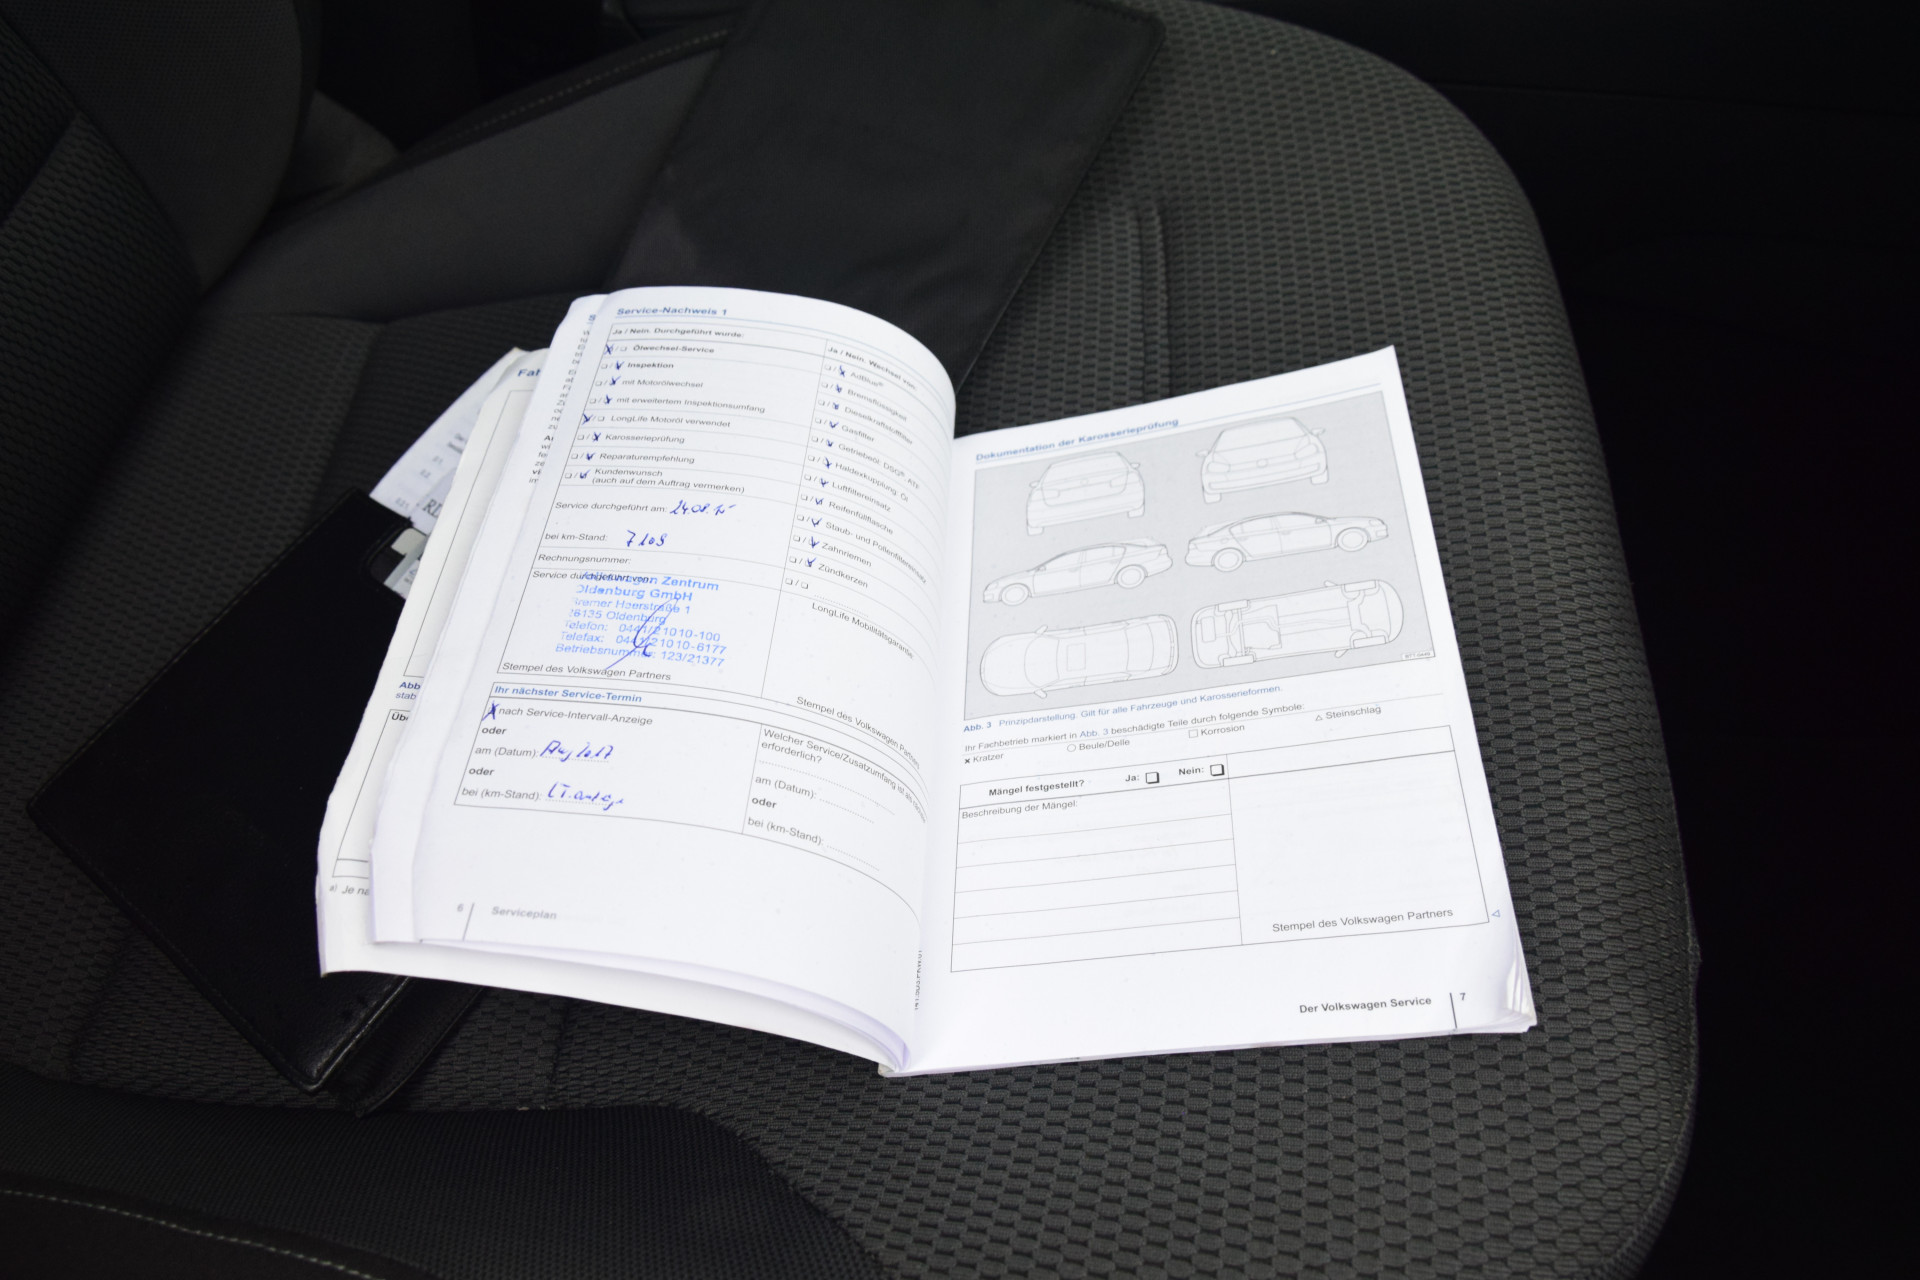 Service-Nachweis 1
Ja / Nein. Durchgeführt wurde:
Ölwechsel-Service
Inspektion
mit Motorölwechsel
mit erweitertem Inspektionsumfang
LongLife Motoröl verwendet
Karosserieprüfung
Reparaturempfehlung
Kundenwunsch
(auch auf dem Auftrag vermerken)
Service durchgeführt am: 24.08.15
bei km-Stand: 7109
Rechnungsnummer:
Service durchgeführt von:
Volkswagen Zentrum
Oldenburg GmbH
Bremer Heerstraße 1
26135 Oldenburg
Telefon: 0441/21010-100
Telefax: 0441/21010-6177
Betriebsnummer: 123/21377
Stempel des Volkswagen Partners
Ja / Nein. Wechsel von:
AdBlue®
Bremsflüssigkeit
Dieselkraftstofffilter
Gasfilter
Getriebeöl: DSG®, ATF
Haldexkupplung: Öl
Luftfiltereinsatz
Reifenfüllflasche
Staub- und Pollenfiltereinsatz
Zahnriemen
Zündkerzen
LongLife Mobilitätsgarantie:
Stempel des Volkswagen Partners
Ihr nächster Service-Termin
nach Service-Intervall-Anzeige
oder
am (Datum): Aug 2017
oder
bei (km-Stand):
Welcher Service/Zusatzumfang ist als nächstes
erforderlich?
am (Datum):
oder
bei (km-Stand):
6 Serviceplan
Dokumentation der Karosserieprüfung
Abb. 3 Prinzipdarstellung. Gilt für alle Fahrzeuge und Karosserieformen.
Ihr Fachbetrieb markiert in Abb. 3 beschädigte Teile durch folgende Symbole:
× Kratzer ○ Beule/Delle □ Korrosion △ Steinschlag
Mängel festgestellt? Ja: Nein:
Beschreibung der Mängel:
Stempel des Volkswagen Partners
Der Volkswagen Service 7